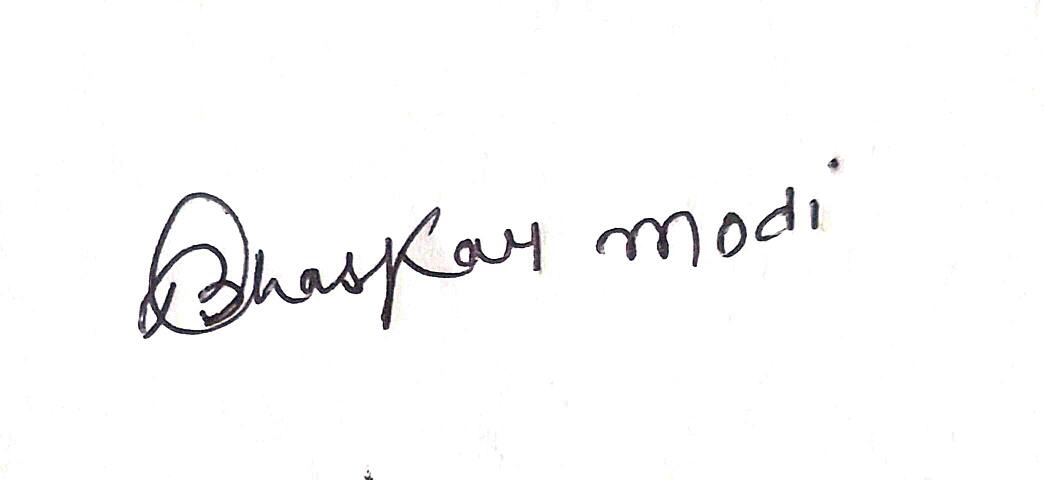 Bhaskar Modi